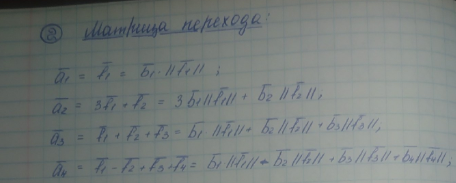 ② Матрица перехода:
a̅₁ = f̅₁ = b̅₁·||f̅₁|| ;
a̅₂ = 3f̅₁ + f̅₂ = 3b̅₁||f̅₁|| + b̅₂||f̅₂||,
a̅₃ = f̅₁ + f̅₂ + f̅₃ = b̅₁||f̅₁|| + b̅₂||f̅₂|| + b̅₃||f̅₃||,
a̅₄ = f̅₁ - f̅₂ + f̅₃ + f̅₄ = b̅₁||f̅₁|| - b̅₂||f̅₂|| + b̅₃||f̅₃|| + b̅₄||f̅₄||,